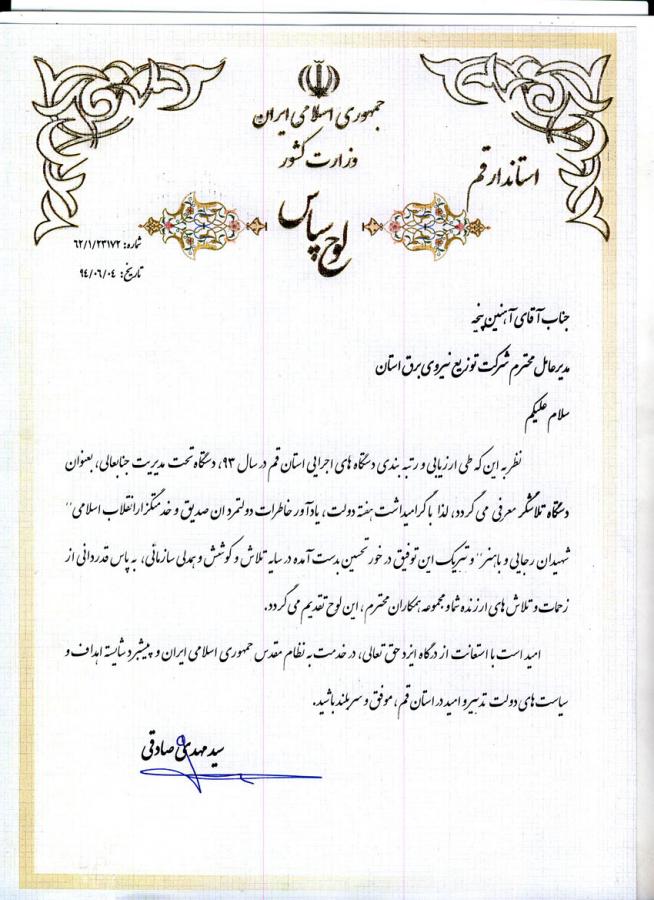 جمهوری اسلامی ایران
وزارت کشور
استاندار قم
لوح سپاس
شماره: ۶۲/۱/۲۳۱۷۲
تاریخ: ۹۴/۰۶/۰۴
جناب آقای آهنین پنجه
مدیرعامل محترم شرکت توزیع نیروی برق استان
سلام علیکم
نظر به این که طی ارزیابی و رتبه بندی دستگاه های اجرایی استان قم در سال ۹۳، دستگاه تحت مدیریت جنابعالی، بعنوان
دستگاه تلاشگر معرفی می گردد، لذا با گرامیداشت هفته دولت، یادآور خاطرات دولتمردان صدیق و خدمتگزار انقلاب اسلامی"
شهیدان رجایی و باهنر" و تبریک این توفیق در خور تحسین بدست آمده در سایه تلاش و کوشش و همدلی سازمانی، به پاس قدردانی از
زحمات و تلاش های ارزنده شما و مجموعه همکاران محترم، این لوح تقدیم می گردد.
امید است با استعانت از درگاه ایزد حق تعالی، در خدمت به نظام مقدس جمهوری اسلامی ایران و پیشبرد شایسته اهداف و
سیاست های دولت تدبیر و امید در استان قم، موفق و سربلند باشید.
سید مهدی صادقی